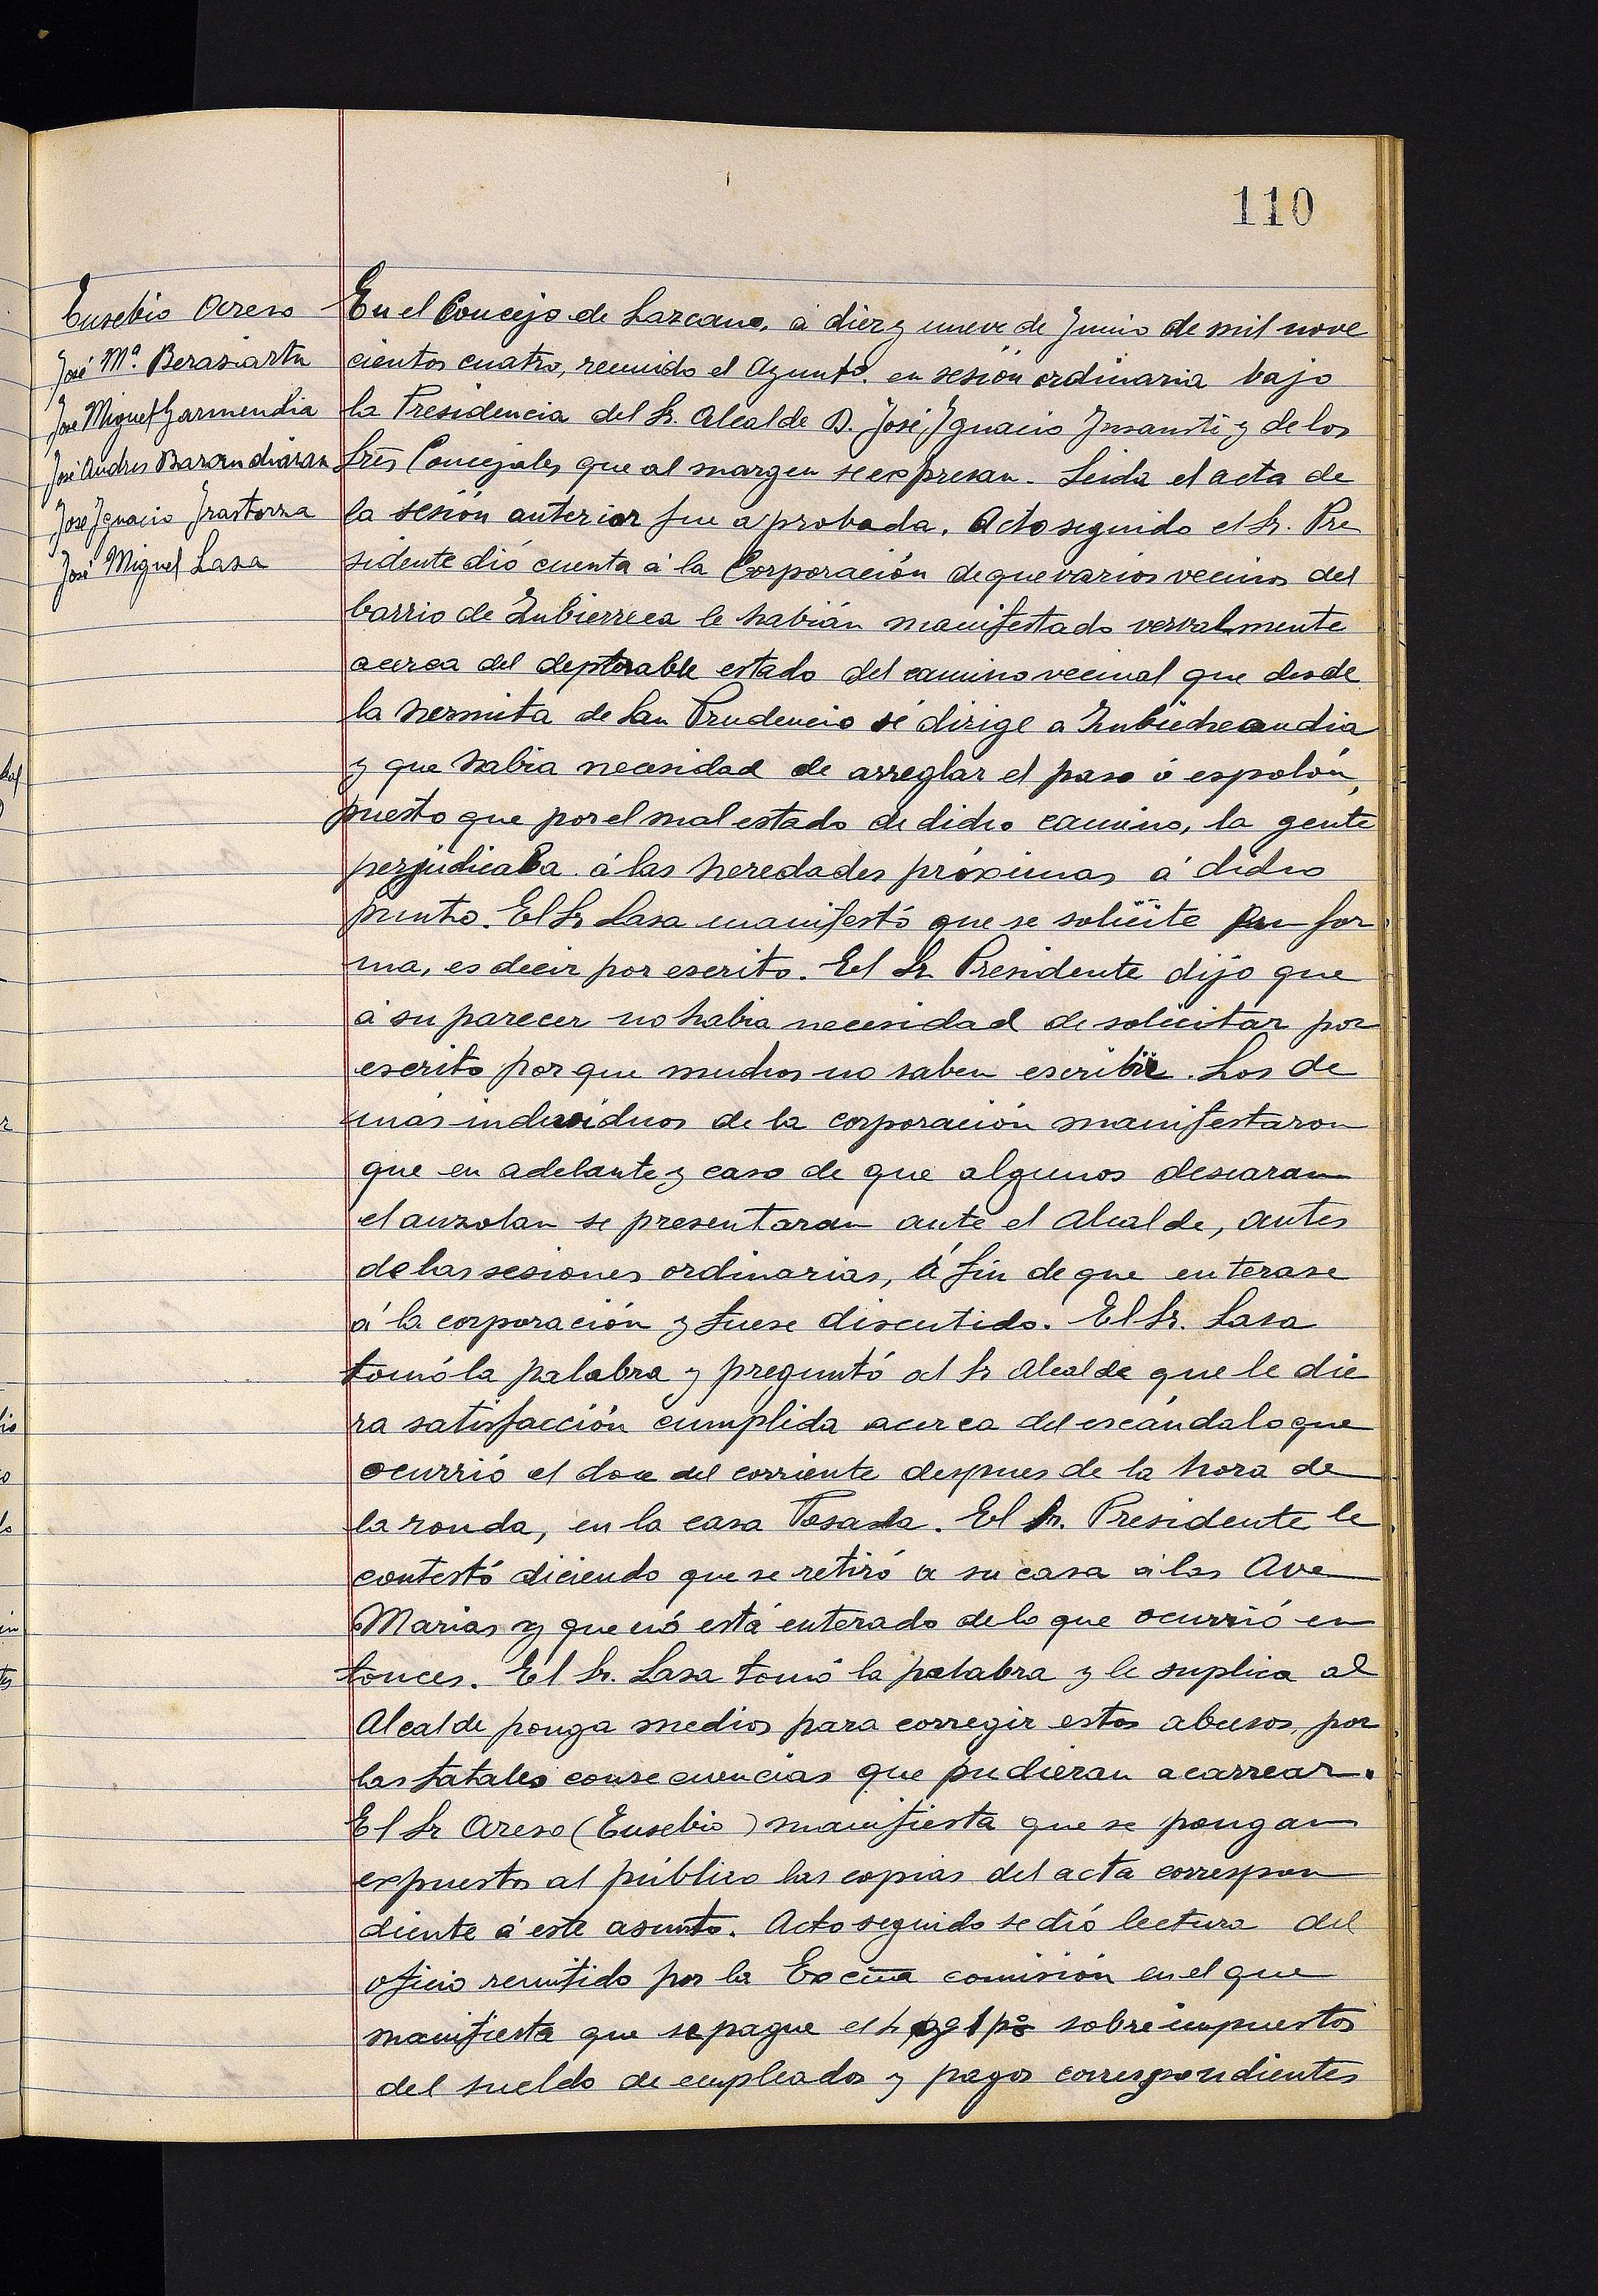 110
Eusebio Areso
José Mª. Berasiartu
José Miguel Garmendia
José Andres Barandiaran
José Ygnacio Irastorza
José Miguel Lasa
En el Concejo de Lazcano, á diez y nueve de Junio de mil nove
cientos cuatro, reunido el Ayunto. en sesión ordinaria bajo
la Presidencia del Sr. Alcalde D. José Ygnacio Insausti y de los
Sres Concejales que al margen se expresan. Leida el acta de
la sesión anterior fue aprobada. Acto seguido el Sr. Pre
sidente dió cuenta á la Corporación de que varios vecinos del
barrio de Zubierreca le habián manifestado vervalmente
acerca del deplorable estado del camino vecinal que desde
la hermita de San Prudencio sé dirige a Zubicheandia
y que habia necesidad de arreglar el paso ó espolón,
puesto que por el mal estado de dicho camino, la gente
perjudicaba á las heredades próximas á dicho
punto. El Sr Lasa manifestó que se solicite en for
ma, es decir por escrito. El Sr. Presidente dijo que
á su parecer no habia necesidad de solicitar por
escrito por que muchos no saben escribir. Los de
mas individuos de la corporación manifestaron
que en adelante y caso de que algunos desearan
el auzolan se presentaran ante el Alcalde, antes
de las sesiones ordinarias, á fin de que enterase
á la corporación y fuese discutido. El Sr. Lasa
tomó la palabra y preguntó al Sr Alcalde que le die
ra satisfacción cumplida acerca del escándalo que
ocurrió el doce del corriente despues de la hora de
la ronda, en la casa Posada. El Sr. Presidente le
contestó diciendo que se retiró a su casa á las Ave
Marias y que nó está enterado de lo que ocurrió en
tonces. El Sr. Lasa tomó la palabra y le suplica al
Alcalde ponga medios para corregir estos abusos, por
las fatales consecuencias que pudieran acarrear.
El Sr Areso (Eusebio) manifiesta que se pongan
expuestos al público las copias del acta correspon
diente á este asunto. Acto seguido se dió lectura del
oficio remitido por la Excma comisión en el que
manifiesta que se pague el sobre impuestos
del sueldo de empleados y pagos correspondientes